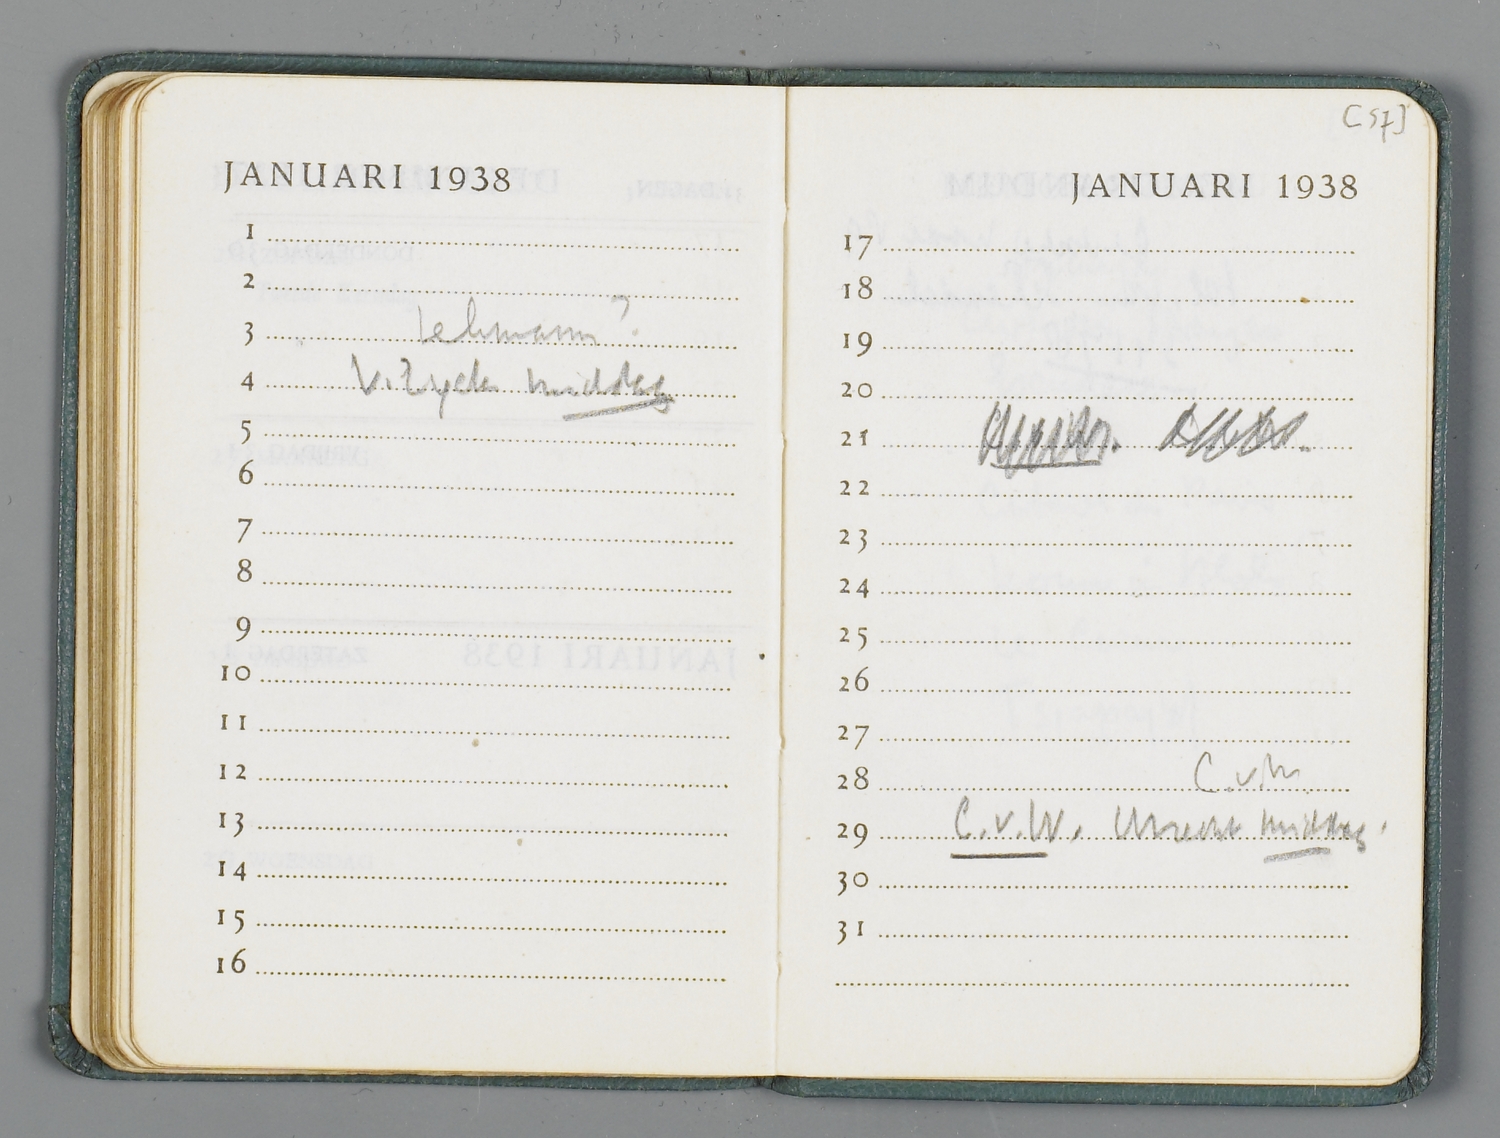 JANUARI 1938
1
2
3 Lehmann?
4 v. Zyede middag
5
6
7
8
9
10
11
12
13
14
15
16
[57]
JANUARI 1938
17
18
19
20
21
22
23
24
25
26
27
28 C.v.W.
29 C.v.W. Utrecht middag
30
31